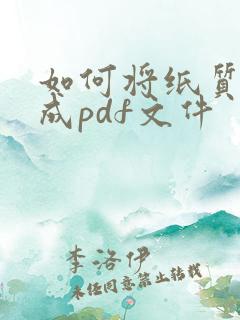 如何将纸质
成pdf文件
李洛伊
未经同意禁止转载